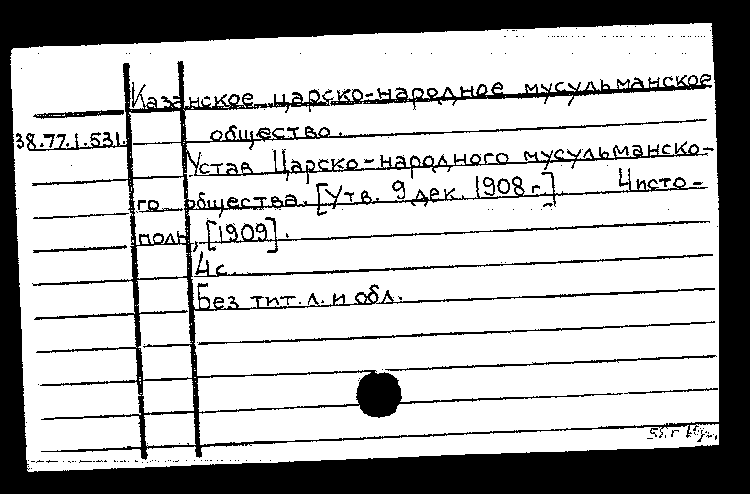 Казанское царско-народное мусульманское
38.77.1.531. общество.
Устав Царско-народного мусульманско-
го общества. [Утв. 9 дек. 1908 г.]. Чисто-
поль, [1909].
4 с.
Без тит. л. и обл.